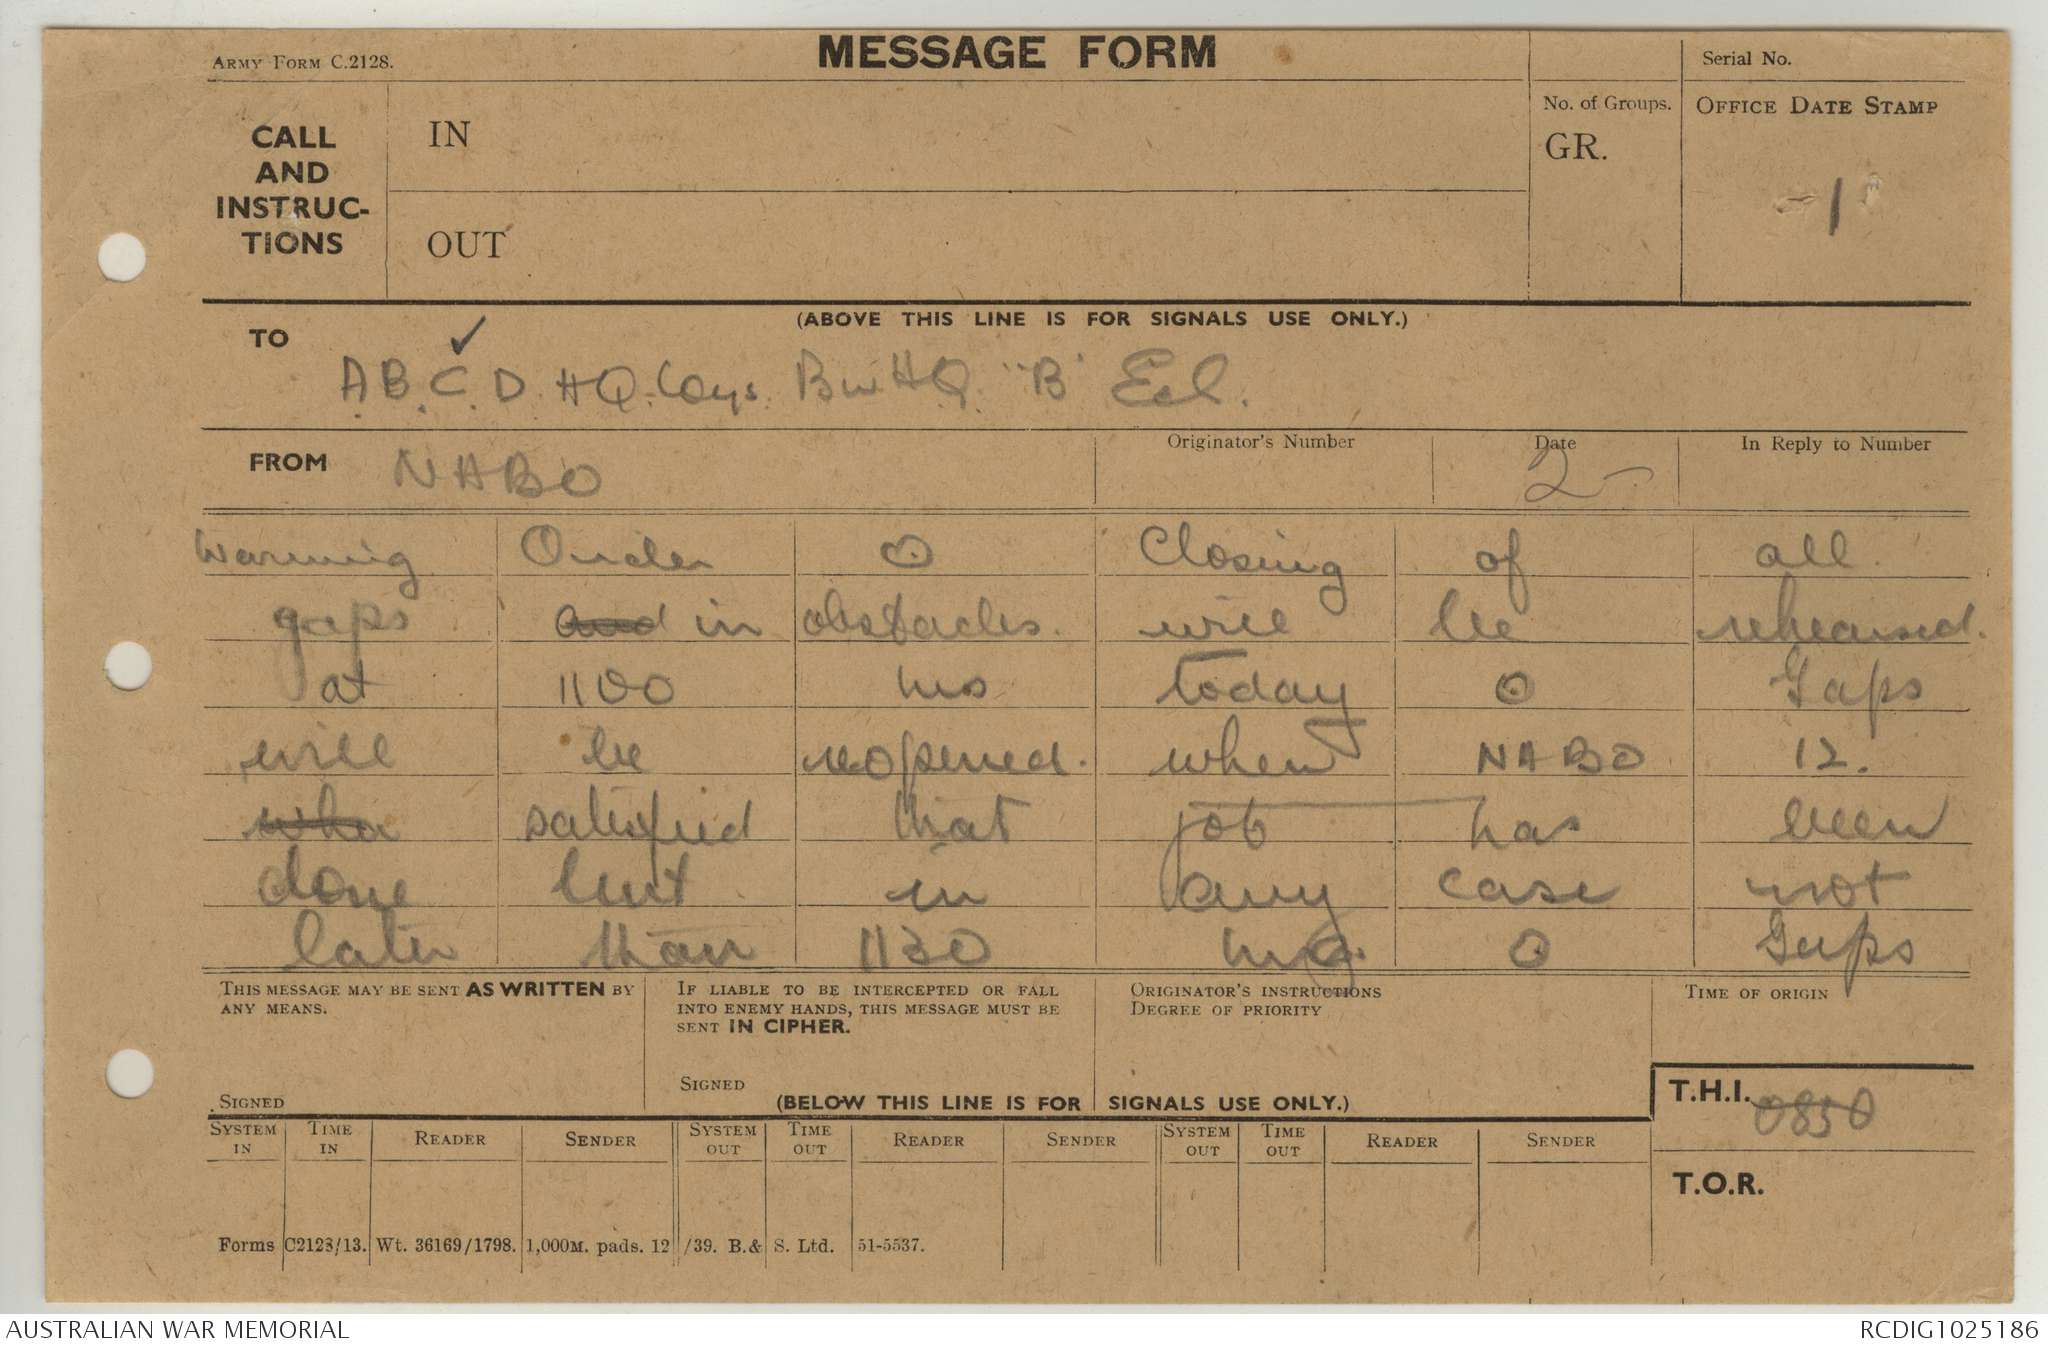 MESSAGE FORM
ARMY FORM C.2128.
Serial No.
CALL AND INSTRUC-TIONS
IN
OUT
No. of Groups.
GR.
OFFICE DATE STAMP
-1-
(ABOVE THIS LINE IS FOR SIGNALS USE ONLY.)
TO
A.B.C.D. HQ. Coys. Bn HQ. "B" Ecl.
FROM NABO
Originator's Number
Date 2-
In Reply to Number
Warning Order O Closing of all
gaps and in obstacles will be rehearsed.
at 1100 hrs today O Gaps
will be reopened when NABO 12.
wha satisfied that job has been
done but in any case not
later than 1130 hrs. O Gaps
THIS MESSAGE MAY BE SENT AS WRITTEN BY ANY MEANS.
SIGNED
IF LIABLE TO BE INTERCEPTED OR FALL INTO ENEMY HANDS, THIS MESSAGE MUST BE SENT IN CIPHER.
SIGNED
ORIGINATOR'S INSTRUCTIONS
DEGREE OF PRIORITY
TIME OF ORIGIN
(BELOW THIS LINE IS FOR SIGNALS USE ONLY.)
T.H.I. 0850
T.O.R.
SYSTEM IN TIME IN READER SENDER SYSTEM OUT TIME OUT READER SENDER SYSTEM OUT TIME OUT READER SENDER
Forms C2128/13. Wt. 36169/1798. 1,000M. pads. 12/39. B.& S. Ltd. 51-5537.
AUSTRALIAN WAR MEMORIAL
RCDIG1025186